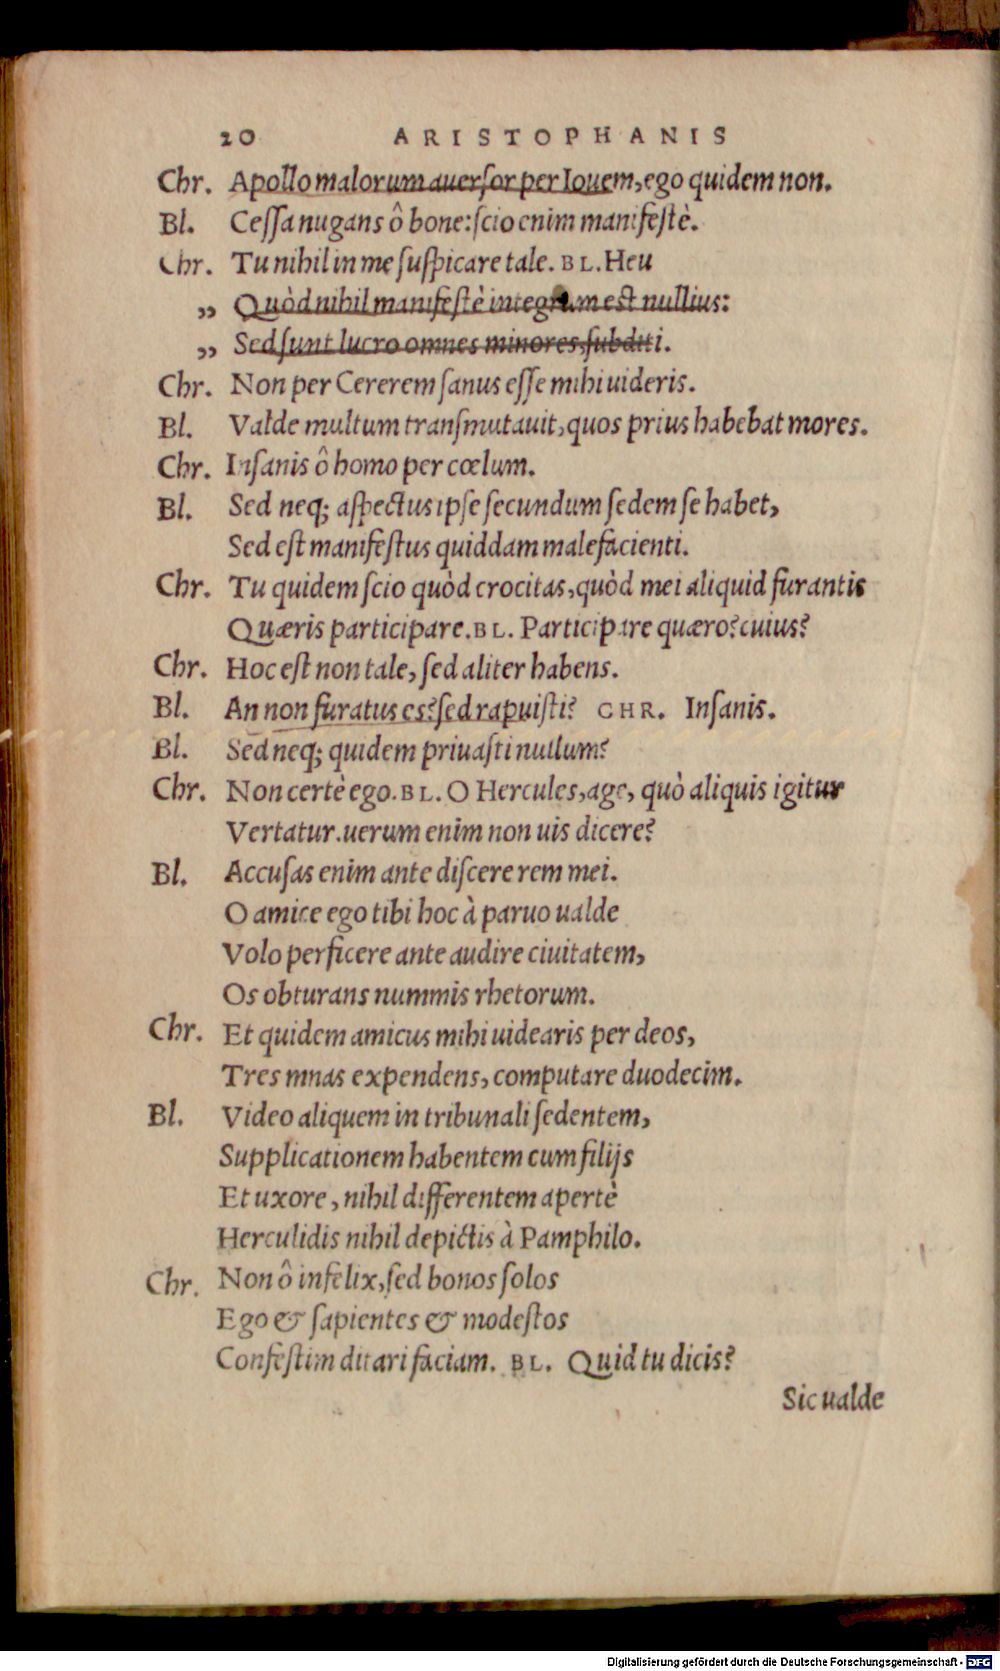 20 ARISTOPHANIS
Chr. Apollo malorum auerſor per Iouem, ego quidem non.
Bl. Ceſſa nugans ô bone: ſcio enim manifeſtè.
Chr. Tu nihil in me ſuſpicare tale. BL. Heu
„ Quòd nihil manifeſtè integrum est nullius:
„ Sed ſunt lucro omnes minores, ſubditi.
Chr. Non per Cererem ſanus eſſe mihi uideris.
Bl. Valde multum tranſmutauit, quos prius habebat mores.
Chr. Inſanis ô homo per cœlum.
Bl. Sed neq; aſpectus ipſe ſecundum ſedem ſe habet,
Sed eſt manifeſtus quiddam malefacienti.
Chr. Tu quidem ſcio quòd crocitas, quòd mei aliquid furantis
Quæris participare. BL. Participare quæro? cuius?
Chr. Hoc eſt non tale, ſed aliter habens.
Bl. An non furatus es? ſed rapuiſti? CHR. Inſanis.
Bl. Sed neq; quidem priuaſti nullum?
Chr. Non certè ego. BL. O Hercules, age, quò aliquis igitur
Vertatur. uerum enim non uis dicere?
Bl. Accuſas enim ante diſcere rem mei.
O amice ego tibi hoc à paruo ualde
Volo perficere ante audire ciuitatem,
Os obturans nummis rhetorum.
Chr. Et quidem amicus mihi uidearis per deos,
Tres mnas expendens, computare duodecim.
Bl. Video aliquem in tribunali ſedentem,
Supplicationem habentem cum filijs
Et uxore, nihil differentem apertè
Herculidis nihil depictis à Pamphilo.
Chr. Non ô infelix, ſed bonos ſolos
Ego & ſapientes & modeſtos
Confeſtim ditari faciam. BL. Quid tu dicis?
Sic ualde
Digitalisierung gefördert durch die Deutsche Forschungsgemeinschaft - DFG